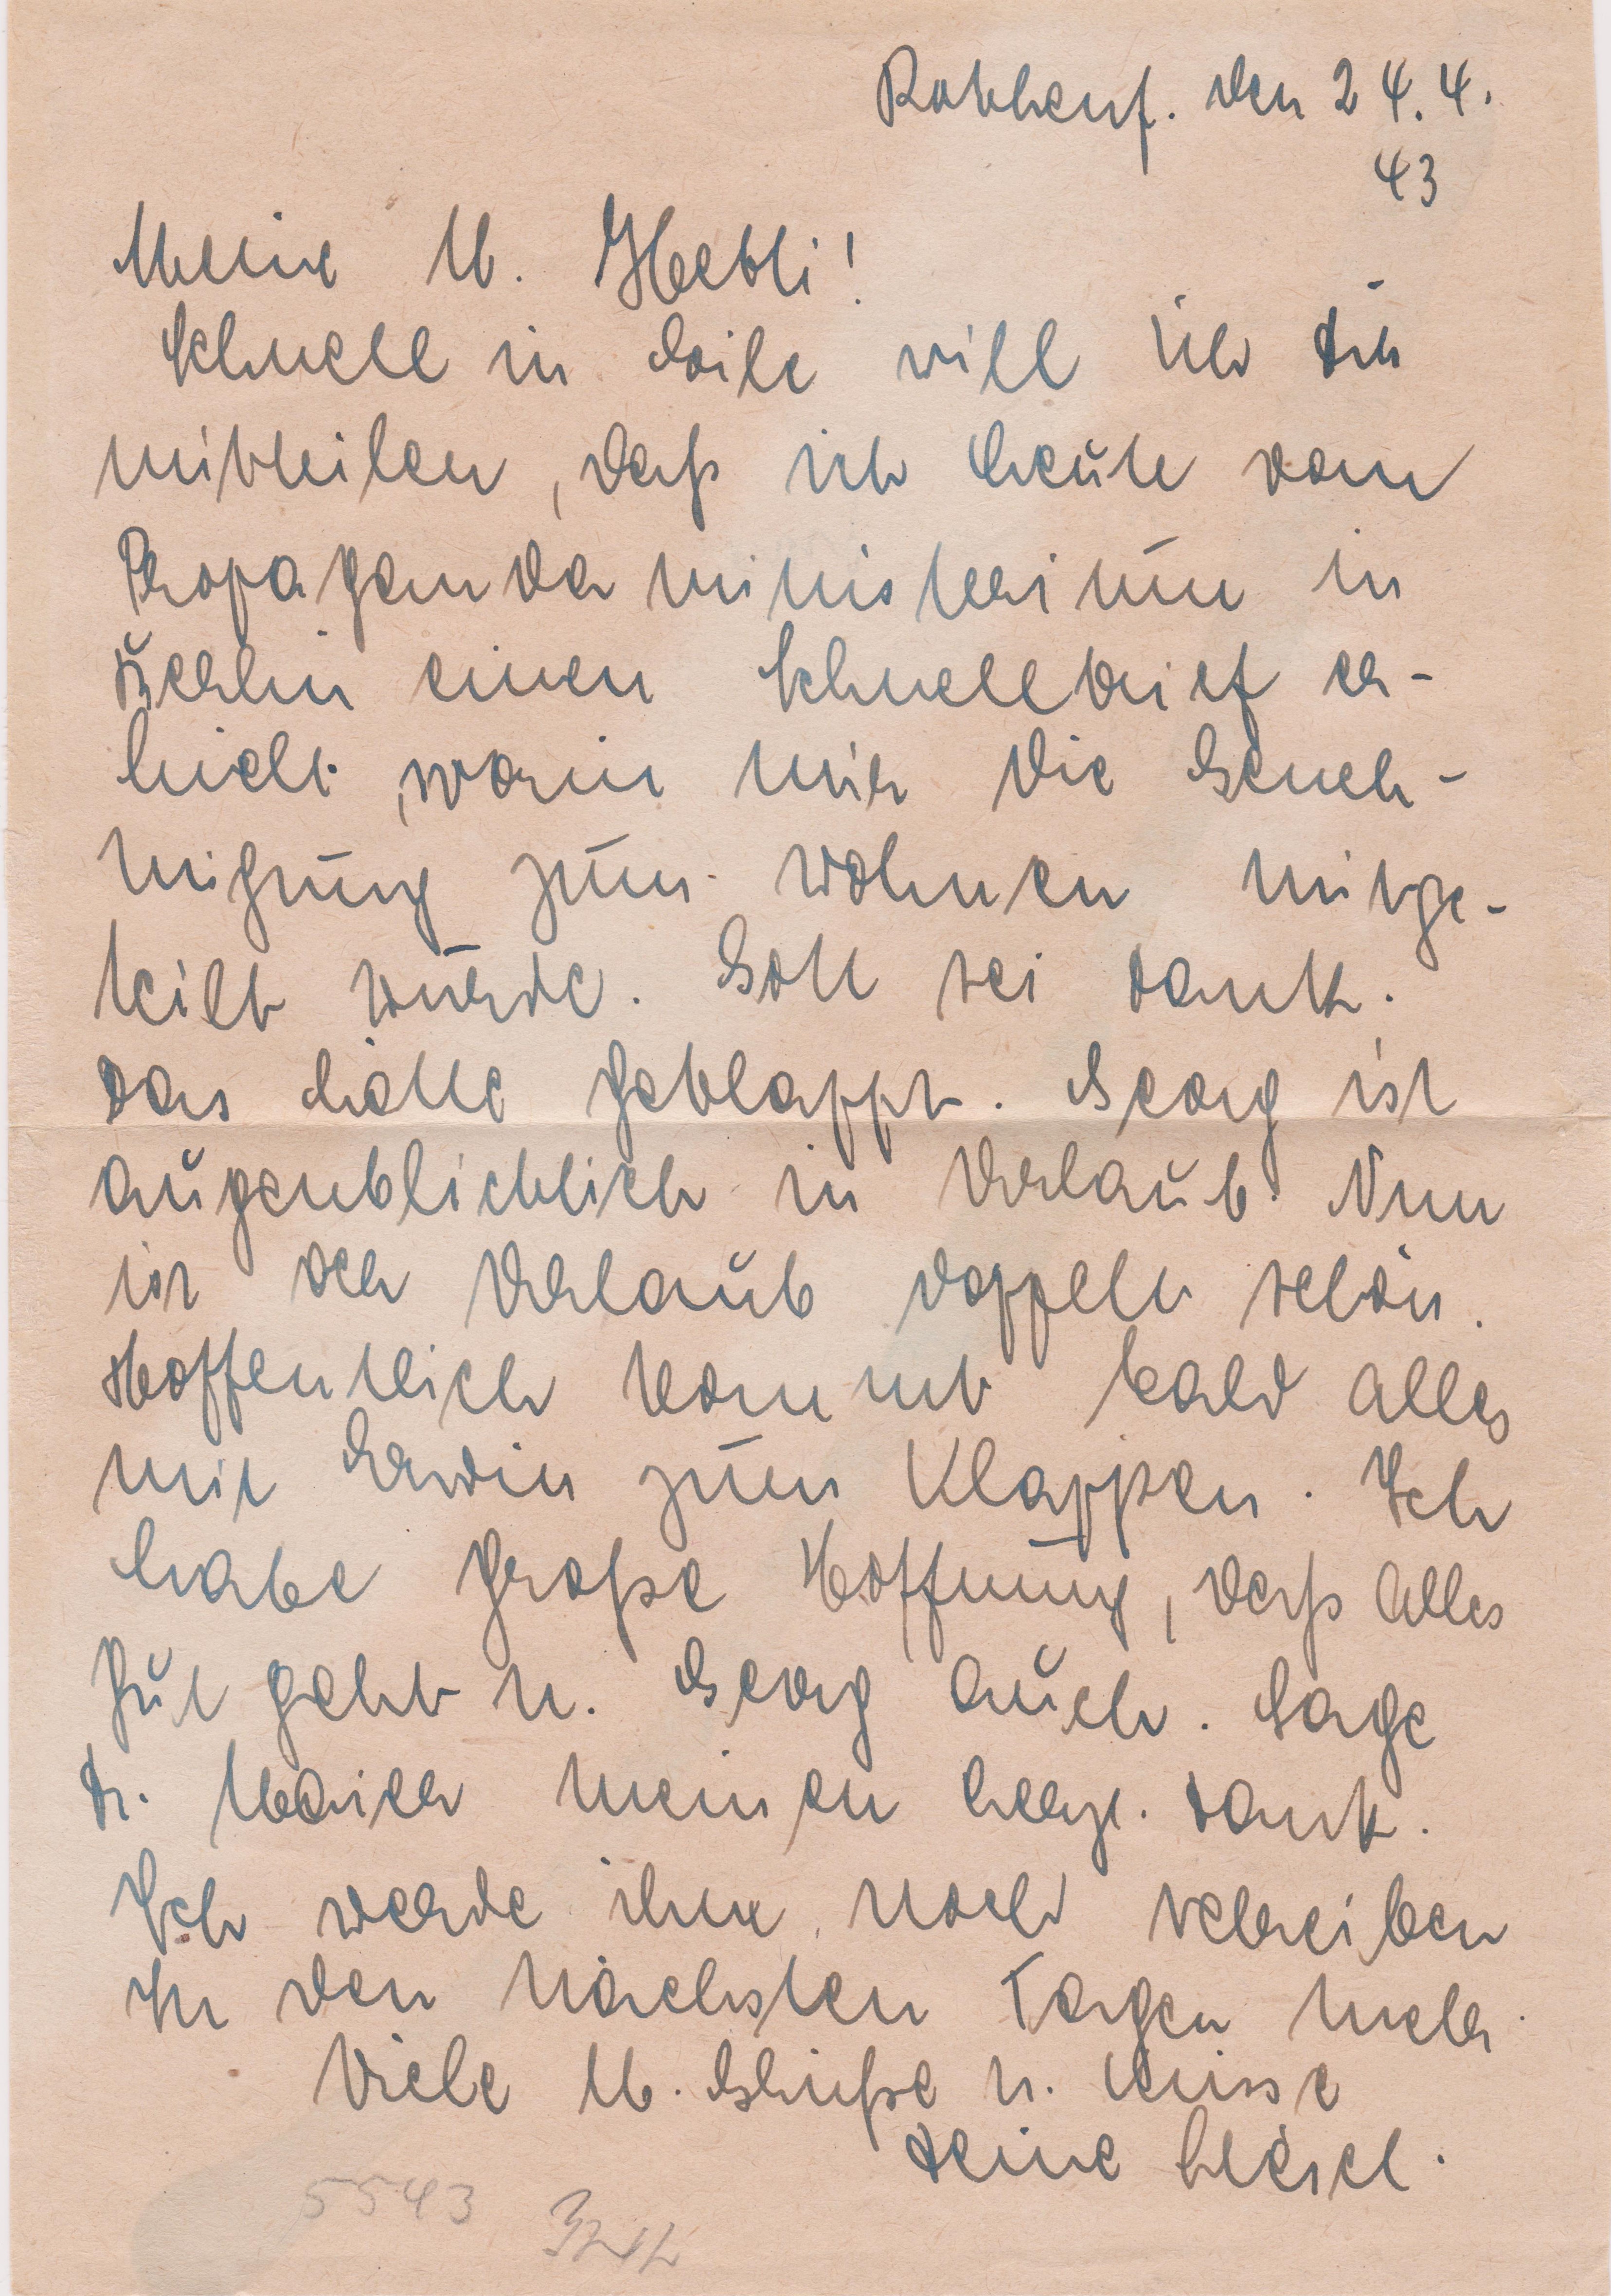 Rottenf. den 24.4.
43
Meine lb. Hetti!
Schnell in Eile will ich Dir
mitteilen, daß ich heute vom
Propagandaministerium in
Berlin einen Schnellbrief er-
hielt, worin mir die Geneh-
migung zum Wohnen mitge-
teilt wurde. Gott sei Dank.
Das hätte geklappt. Georg ist
augenblicklich in Urlaub. Nun
ist der Urlaub doppelt schön.
Hoffentlich kommt bald alles
mit Erwin zum Klappen. Ich
habe große Hoffnung, daß alles
gut geht u. Georg auch. Sage
Dr. Maier meinen herzl. Dank.
Ich werde ihm noch schreiben
In den nächsten Tagen mehr.
Viele lb. Grüße u. Küsse
Deine Liesel.
5543